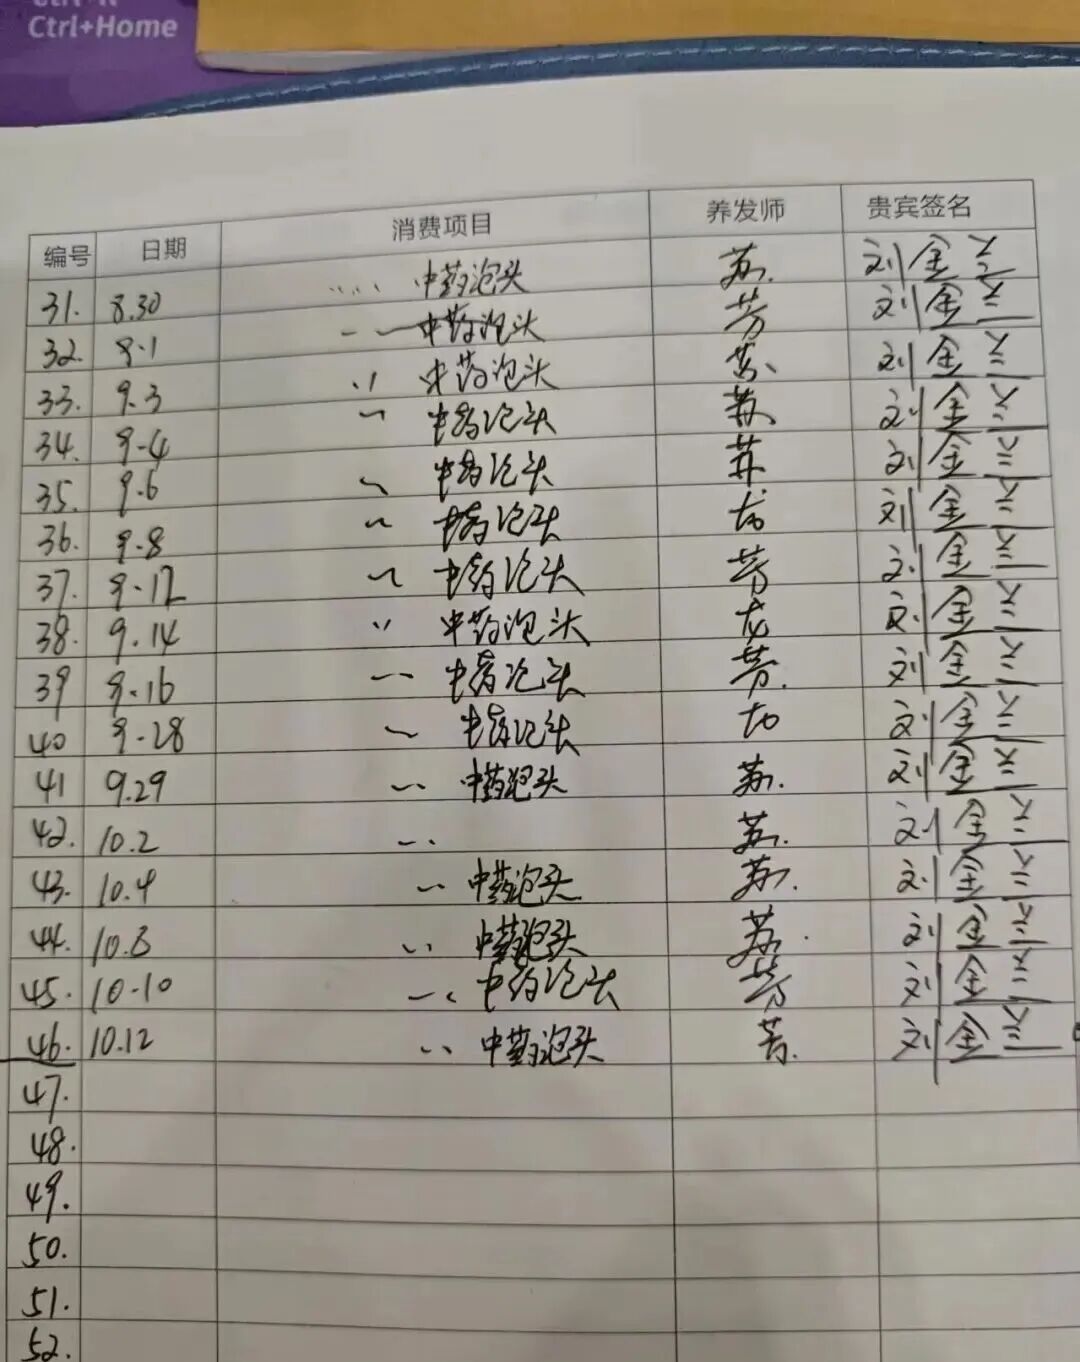 Ctrl+Home
编号 日期 消费项目 养发师 贵宾签名
31. 8.30 中药泡头 苏. 刘金兰
32. 9.1 中药泡头 芳 刘金兰
33. 9.3 中药泡头 苏 刘金兰
34. 9.4 中药泡头 苏 刘金兰
35. 9.6 中药泡头 苏 刘金兰
36. 9.8 中药泡头 刘金兰
37. 9.12 中药泡头 芳 刘金兰
38. 9.14 中药泡头 龙 刘金兰
39 9.16 中药泡头 芳. 刘金兰
40 9.28 中药泡头 刘金兰
41 9.29 中药泡头 苏. 刘金兰
42. 10.2 苏. 刘金兰
43. 10.4 中药泡头 苏. 刘金兰
44. 10.8 中药泡头 苏. 刘金兰
45. 10.10 中药泡头 芳 刘金兰
46. 10.12 中药泡头 芳. 刘金兰
47.
48.
49.
50.
51.
52.